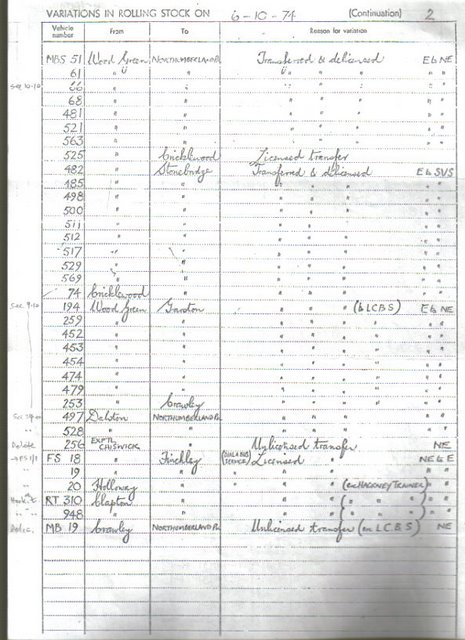 VARIATIONS IN ROLLING STOCK ON 6-10-74 (Continuation) 2
Vehicle number From To Reason for variation
MBS 51 Wood Green NORTHUMBERLAND Pk. Transferred & delicensed E to NE
61 " " " " " " " "
66 " " " " " " "
68 " " " " " " "
481 " " " " " " "
521 " " " " " " "
563 " " " " " " "
525 " Cricklewood Licensed transfer
482 " Stonebridge Transferred & delicensed E to SVS
485 " " " " " " "
498 " " " " " " "
500 " " " " " " "
511 " " " " " " "
512 " " " " " " "
517 " " " " " " "
529 " " " " " " "
569 " " " " " " "
74 Cricklewood " " " " " "
Sec 9-10 194 Wood Green Garston " " " (to LCBS) E to NE
259 " " " " " " " "
452 " " " " " " " "
453 " " " " " " " "
454 " " " " " " " "
474 " " " " " " " "
479 " " " " " " " "
253 " Crawley " " " " " "
497 Dalston NORTHUMBERLAND Pk. " " " " "
528 " " " " " " "
256 EXPTL CHISWICK " Unlicensed transfer NE
FS 18 " Finchley Licensed " NE to E
19 " " " " " "
20 Holloway " " " (ex HACKNEY TRAINER) "
RT 310 Clapton " " " ( " " ) "
948 " " " " ( " " ) "
MB 19 Crawley NORTHUMBERLAND Pk. Unlicensed transfer (ex L.C.B.S) NE